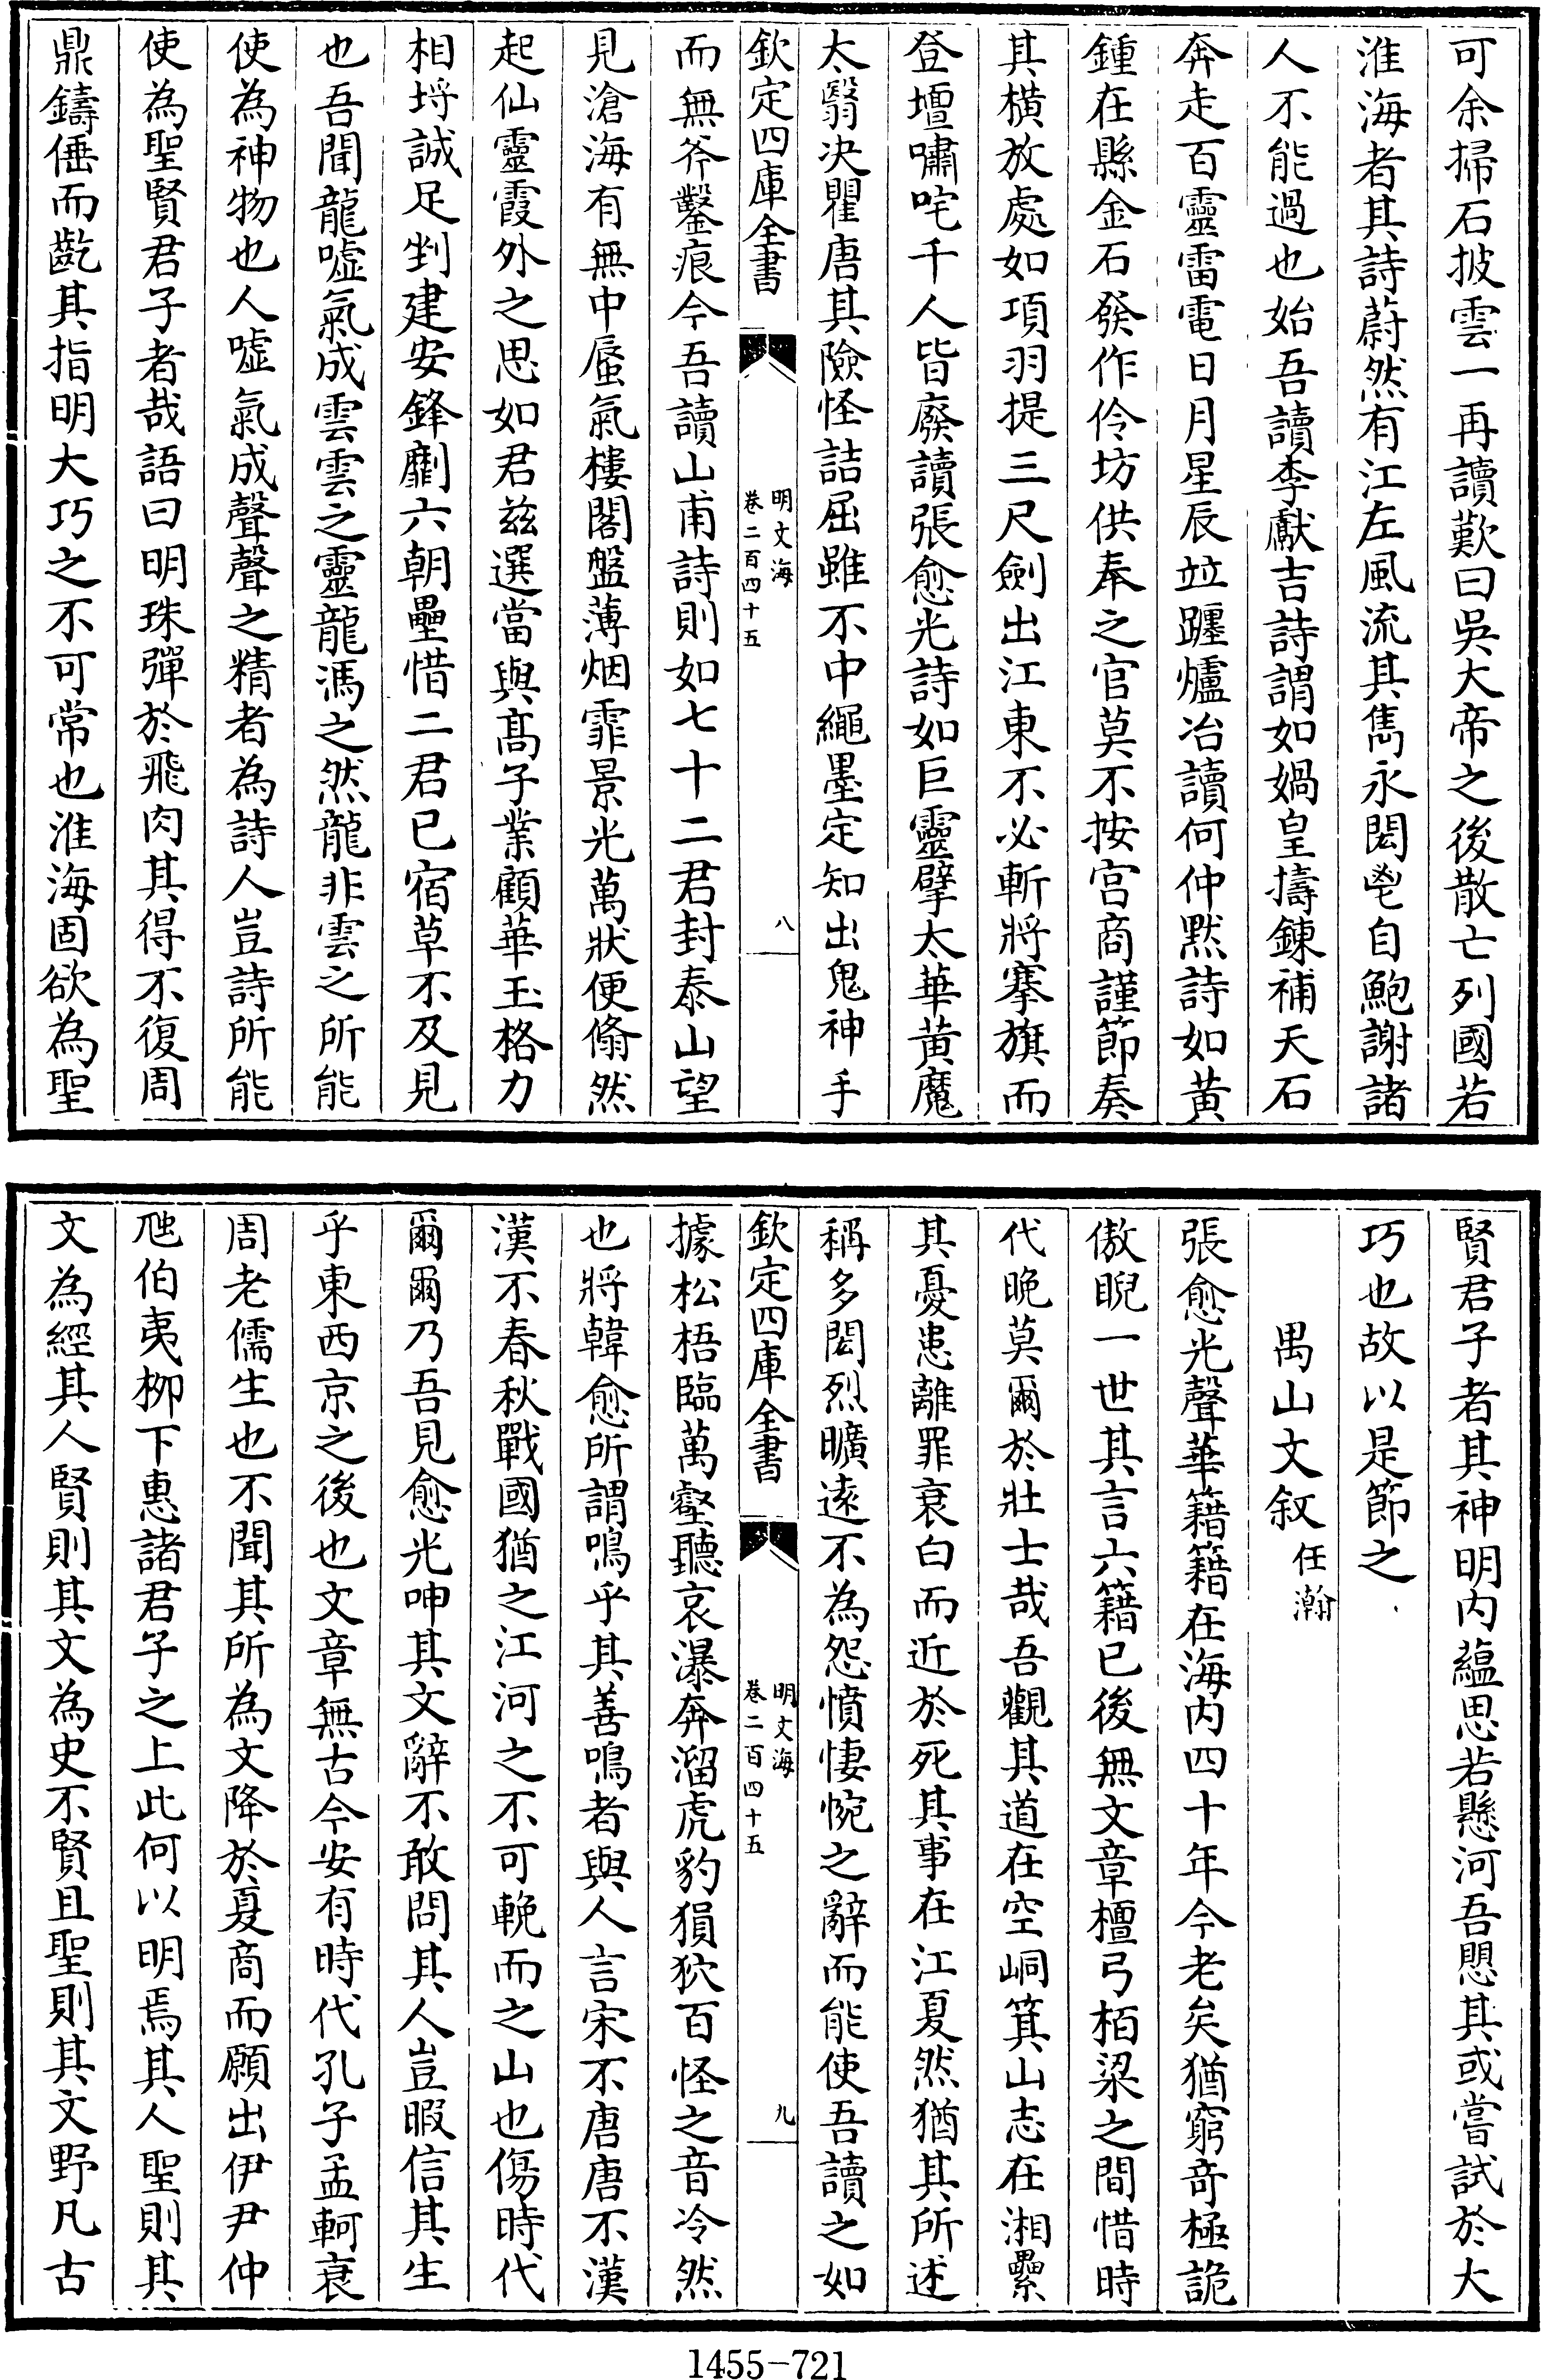 可余掃石披雲一再讀歎曰吳大帝之後散亡列國若
淮海者其詩蔚然有江左風流其雋永閎鬯自鮑謝諸
人不能過也始吾讀李獻吉詩謂如媧皇擣鍊補天石
奔走百靈雷電日月星辰竝躔爐冶讀何仲黙詩如黄
鍾在縣金石發作伶坊供奉之官莫不按宫商謹節奏
其橫放處如項羽提三尺劍出江東不必斬將搴旗而
登壇嘯咤千人皆廢讀張愈光詩如巨靈擘太華黄魔
太翳决瞿唐其險怪詰屈雖不中繩墨定知出鬼神手
欽定四庫全書
明文海
卷二百四十五
八
而無斧鑿痕今吾讀山甫詩則如七十二君封泰山望
見滄海有無中蜃氣樓閣盤薄烟霏景光萬狀便翛然
起仙靈霞外之思如君兹選當與髙子業顧華玉格力
相埒誠足剉建安鋒劘六朝壘惜二君已宿草不及見
也吾聞龍噓氣成雲雲之靈龍馮之然龍非雲之所能
使為神物也人噓氣成聲聲之精者為詩人豈詩所能
使為聖賢君子者哉語曰明珠彈於飛肉其得不復周
鼎鑄倕而齕其指明大巧之不可常也淮海固欲為聖
賢君子者其神明内藴思若懸河吾愳其或嘗試於大
巧也故以是節之
禺山文叙 任瀚
張愈光聲華籍籍在海内四十年今老矣猶窮奇極詭
傲睨一世其言六籍已後無文章檀弓栢梁之間惜時
代晚莫爾於壯士哉吾觀其道在空峒箕山志在湘纍
其憂患離罪衰白而近於死其事在江夏然猶其所述
稱多閎烈曠逺不為怨憤悽惋之辭而能使吾讀之如
欽定四庫全書
明文海
卷二百四十五
九
據松梧臨萬壑聽哀瀑奔溜虎豹狷狖百怪之音冷然
也將韓愈所謂鳴乎其善鳴者與人言宋不唐唐不漢
漢不春秋戰國猶之江河之不可輓而之山也傷時代
爾爾乃吾見愈光呻其文辭不敢問其人豈暇信其生
乎東西京之後也文章無古今安有時代孔子孟軻衰
周老儒生也不聞其所為文降於夏商而願出伊尹仲
虺伯夷柳下惠諸君子之上此何以明焉其人聖則其
文為經其人賢則其文為史不賢且聖則其文野凡古
1455-721